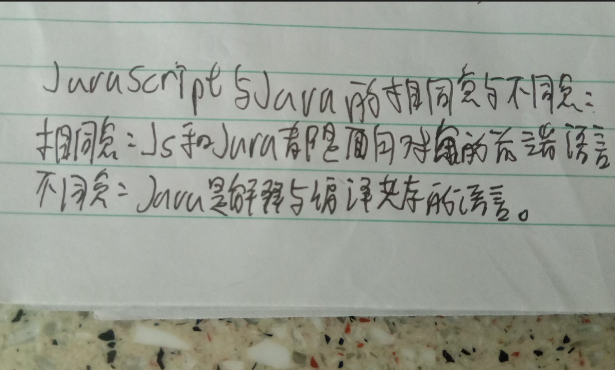 JavaScript与Java的相同点与不同点:
相同点:Js和Java都是面向对象的前端语言
不同点:Java是解释与编译共存的语言。